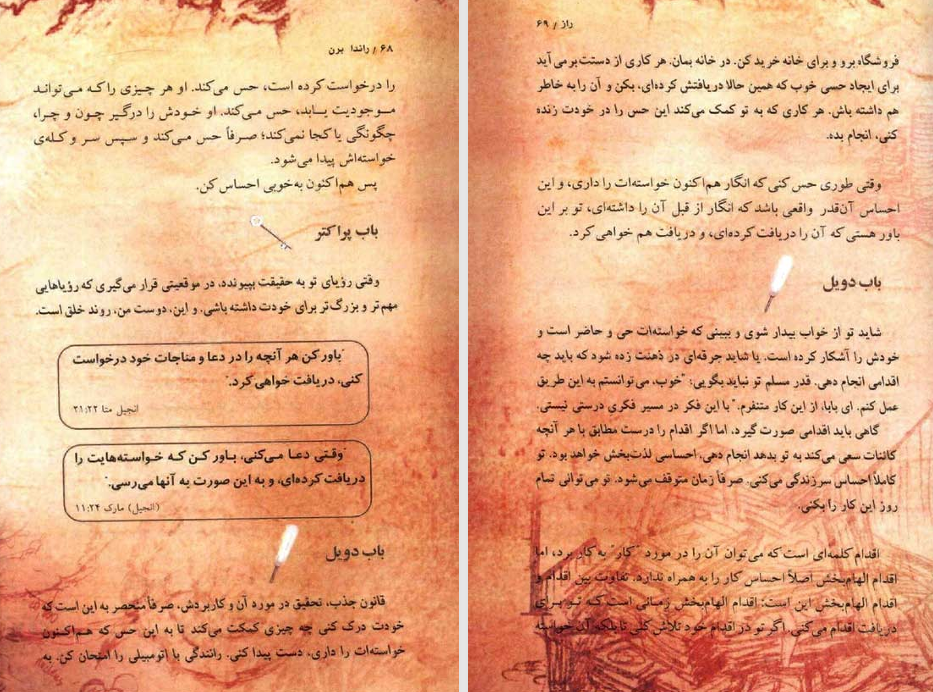 ۶۸ / راندا برن
را درخواست کرده است، حس می‌کند. او هر چیزی را که می‌توانـد
مـوجودیت یـابد، حس می‌کند. او خـودش را درگیر چـون و چـرا،
چگونگی یا کجا نمی‌کند؛ صـرفاً حس مـی‌کند و سپس سـر و کـله‌ی
خواسته‌اش پیدا می‌شود.
پس هم‌اکنون به‌خوبی احساس کن.
باب پراکتر
وقتی رؤیای تو به حقیقت بپیوندد، در موقعیتی قرار می‌گیری که رؤیاهایی
مهم‌تر و بزرگ‌تر برای خودت داشته باشی. و این، دوست من، روند خلق است.
"باور کن هر آنچه را در دعا و مناجات خود درخواست
کنی، دریافت خواهی کرد."
انجیل متا ۲۱:۲۲
"وقـتی دعـا مـی‌کنی، بـاور کـن کـه خـواسـته‌هایت را
دریافت کرده‌ای، و به این صورت به آنها می‌رسی."
(انجیل) مارک ۱۱:۲۴
باب دویل
قانون جذب، تحقیق در مورد آن و کاربردش، صرفاً منحصر به این است که
خودت درک کنی چه چیزی کمکت می‌کند تا به این حس که هـم‌اکـنون
خواسته‌ات را داری، دست پیدا کنی. رانندگی با اتومبیلی را امتحان کن. به
راز / ۶۹
فروشگاه برو و برای خانه خرید کن. در خانه بمان. هر کاری از دستت برمی‌آید
برای ایجاد حسی خوب که همین حالا دریافتش کرده‌ای، بکن و آن را به خاطر
هم داشته باش. هر کاری که به تو کمک می‌کند این حس را در خودت زنده
کنی، انجام بده.
وقتی طوری حس کنی که انگار هم‌اکنون خواسته‌ات را داری، و این
احساس آن‌قدر واقعی باشد که انگار از قبل آن را داشته‌ای، تو بر این
باور هستی که آن را دریافت کرده‌ای، و دریافت هم خواهی کرد.
باب دویل
شاید تو از خواب بیدار شوی و ببینی که خواسته‌ات حی و حاضر است و
خودش را آشکار کرده است. یا شاید جرقه‌ای در ذهنت زده شود که باید چه
اقدامی انجام دهی. قدر مسلم تو نباید بگویی: "خوب، می‌توانستم به این طریق
عمل کنم. ای بابا، از این کار متنفرم." با این فکر در مسیر فکری درستی نیستی.
گاهی باید اقدامی صورت گیرد، اما اگر اقدام را درست مطابق با هر آنچه
کائنات سعی می‌کند به تو بدهد انجام دهی، احساسی لذت‌بخش خواهد بود. تو
کاملاً احساس سرزندگی می‌کنی. صرفاً زمان متوقف می‌شود. تو می‌توانی تمام
روز این کار را بکنی.
اقدام کلمه‌ای است که می‌توان آن را در مورد "کار" به کار برد، اما
اقدام الهام‌بخش اصلاً احساس کار را به همراه ندارد. تفاوت بین اقدام و
اقدام الهام‌بخش این است: اقدام الهام‌بخش زمـانی است کـه تـو بـرای
دریافت اقدام می‌کنی. اگر تو در اقدام خود تلاش کنی تا بلکه آن خواسته